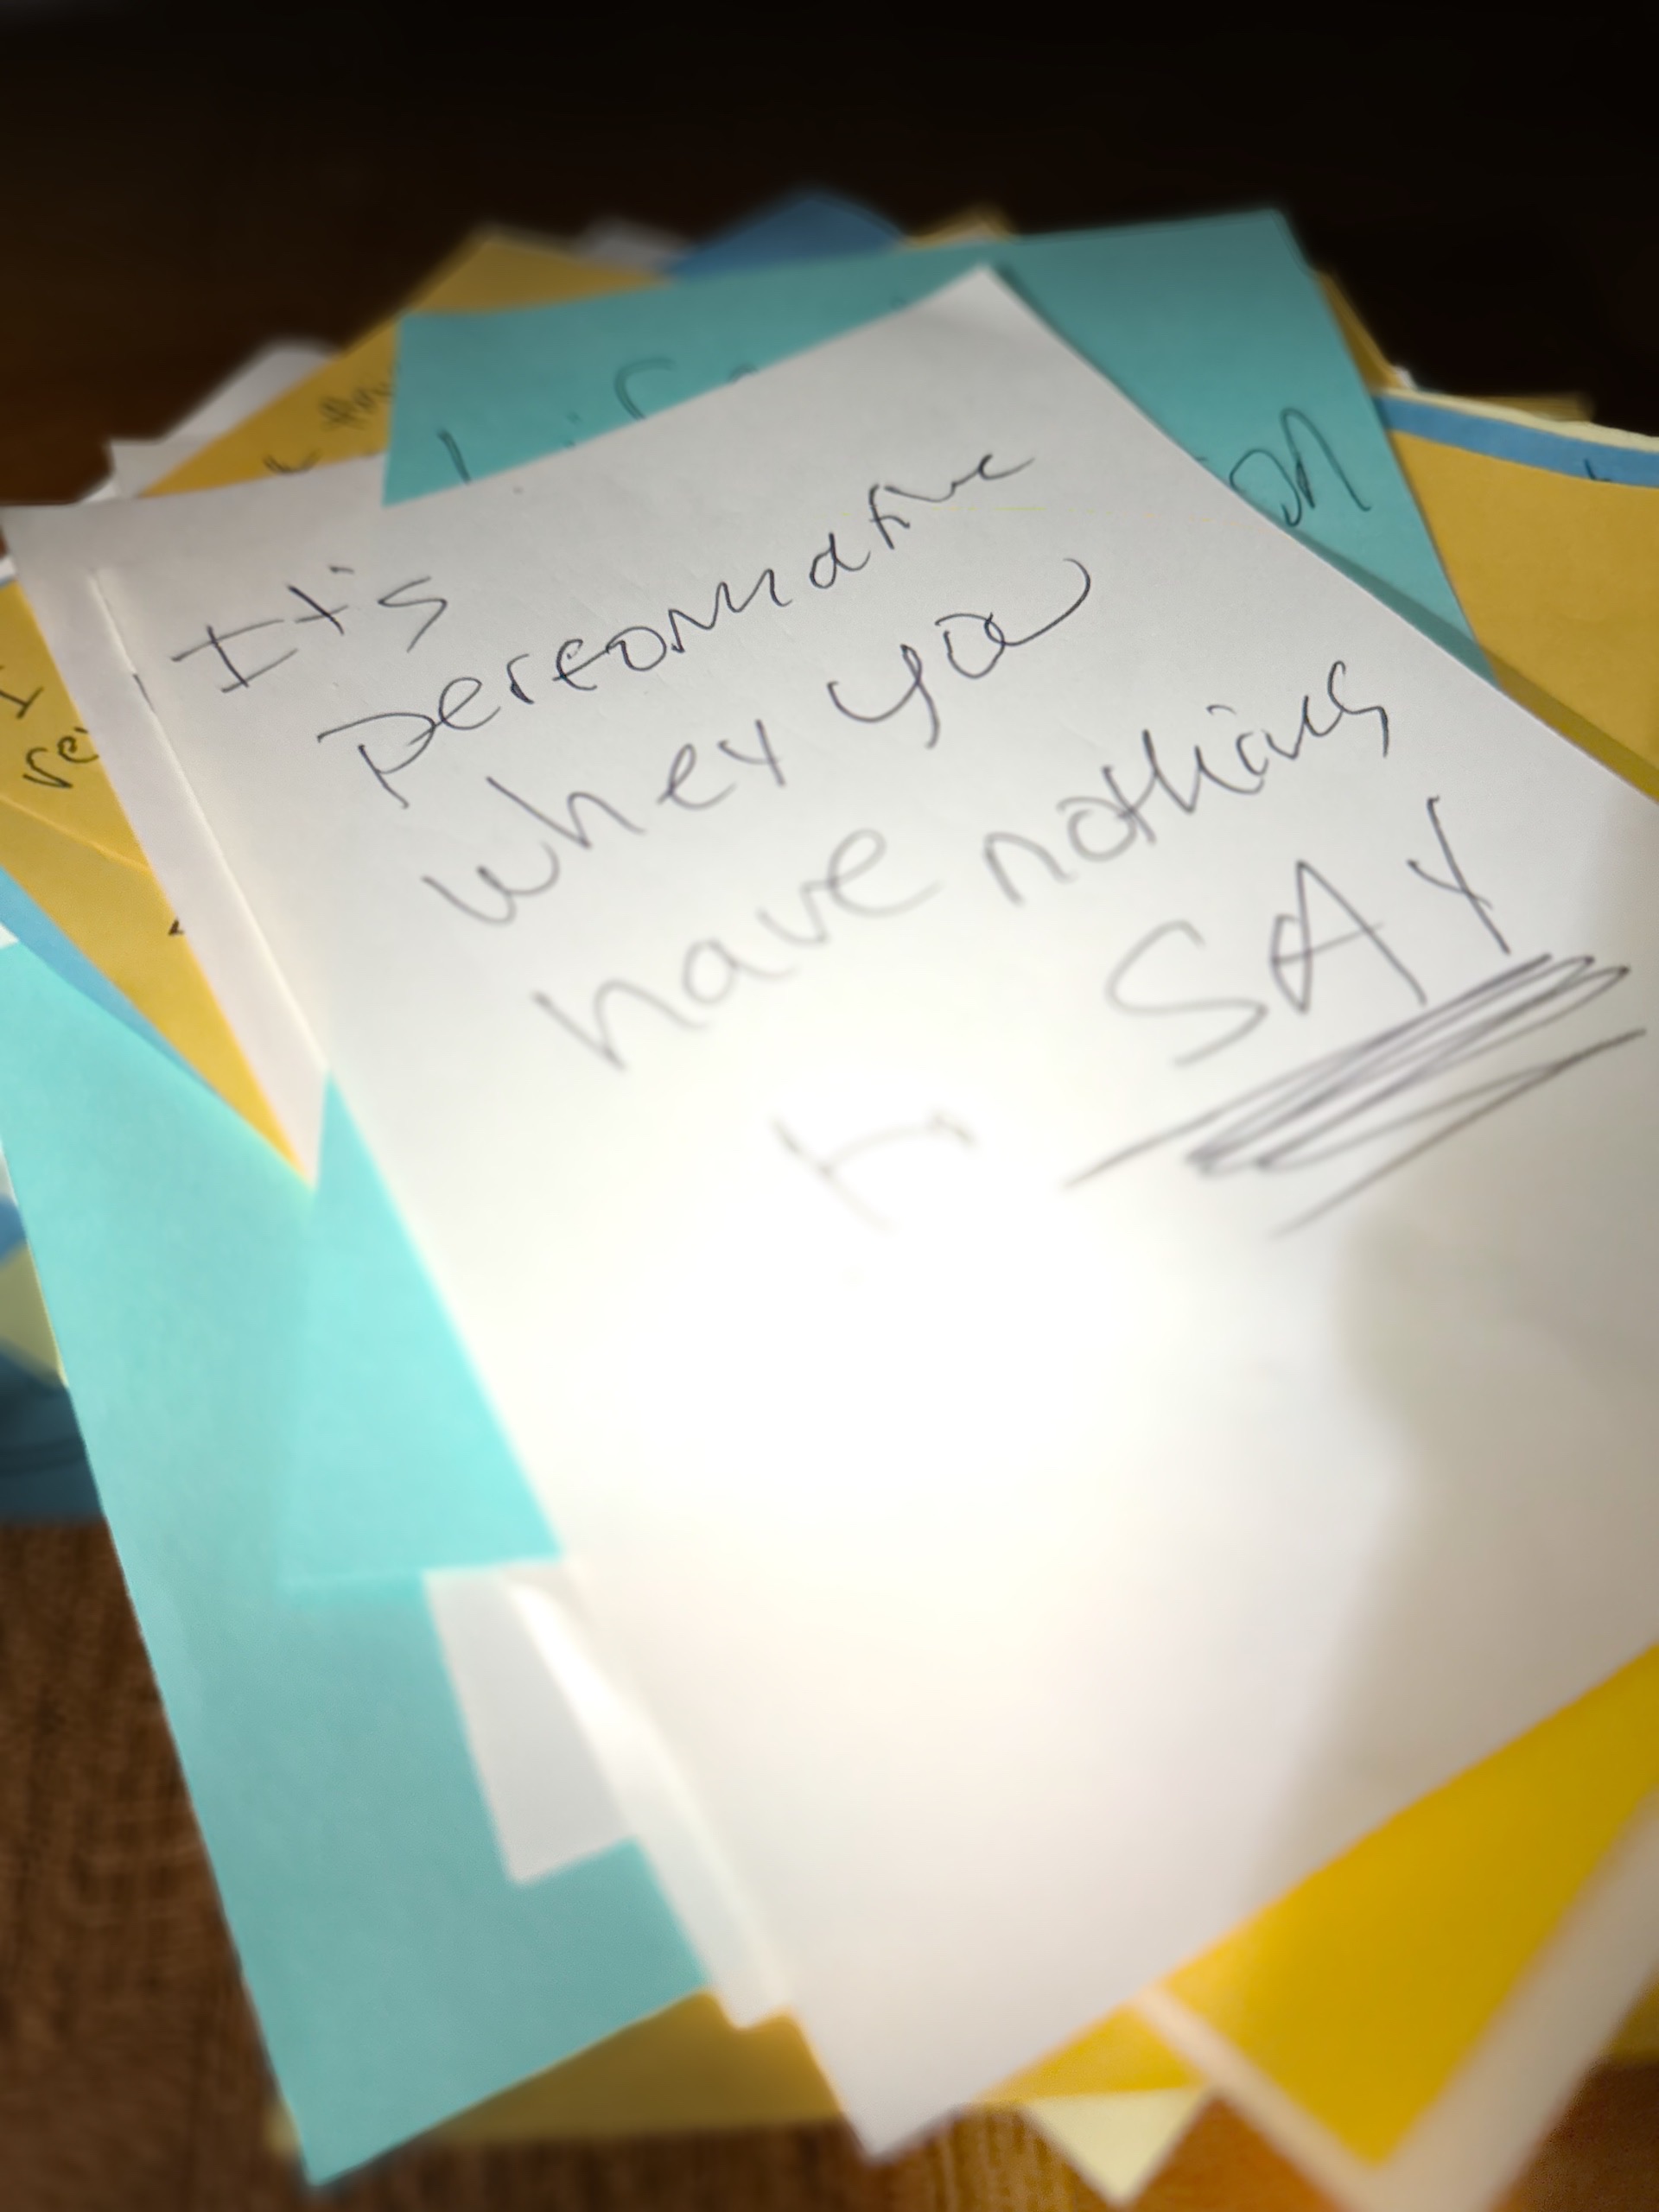 It's
performative
when you
have nothing
to SAY
on
I
re